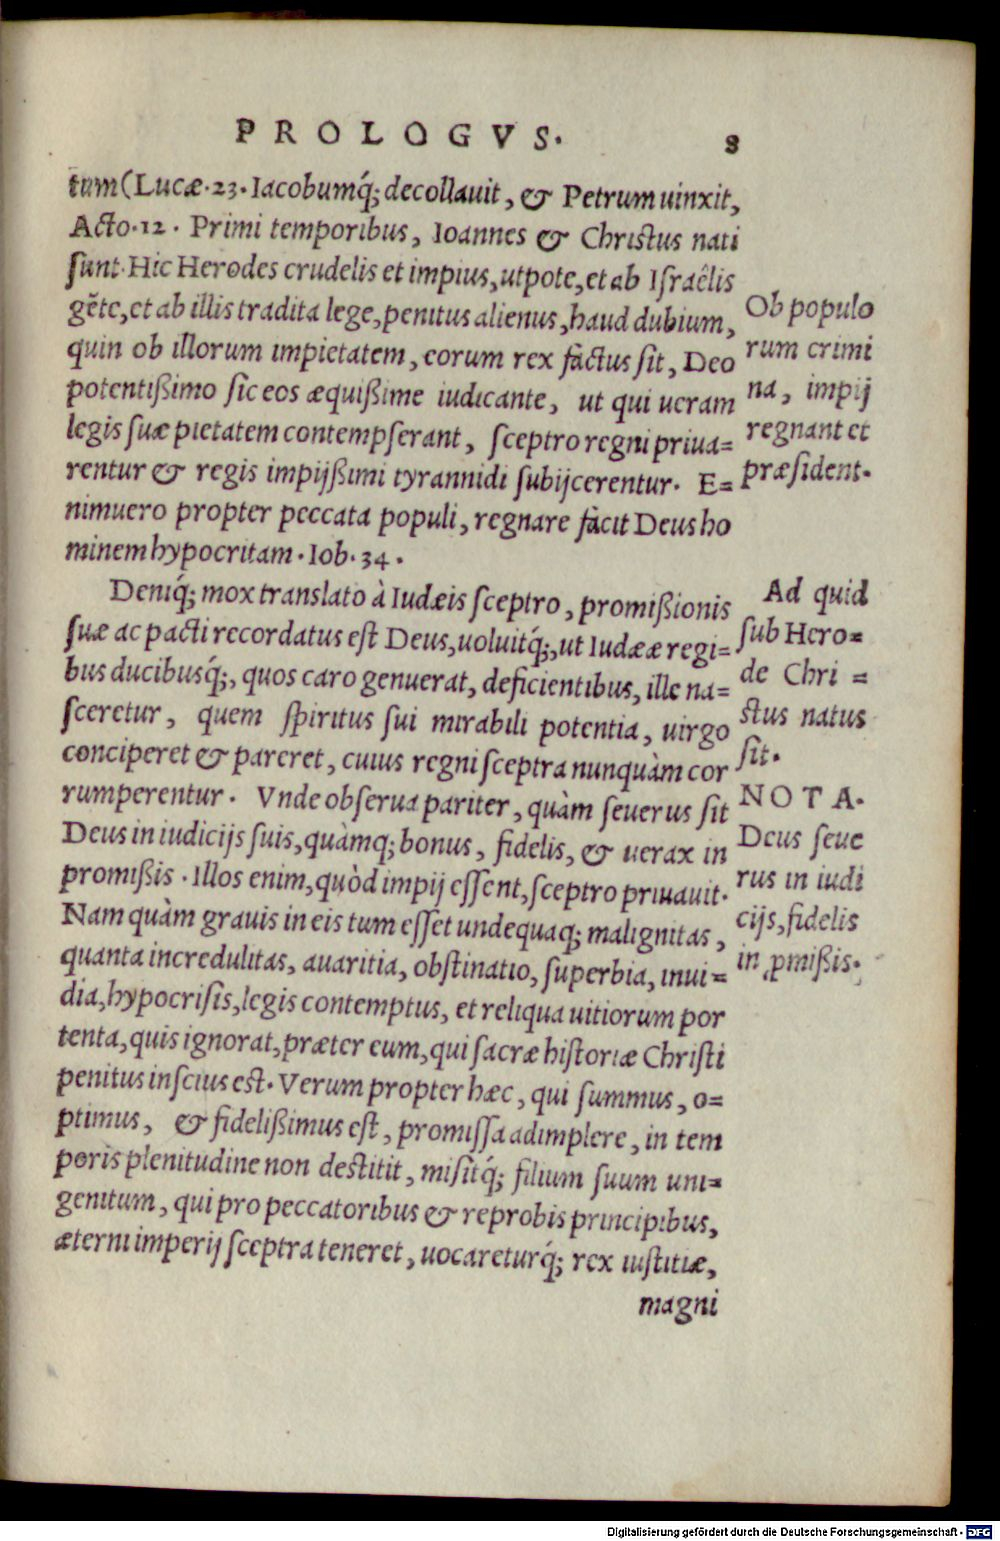 PROLOGVS. 8
tum (Lucæ. 23. Iacobumq́; decollauit, & Petrum uinxit,
Acto. 12. Primi temporibus, Ioannes & Christus nati
sunt. Hic Herodes crudelis et impius, utpote, et ab Israêlis
gẽte, et ab illis tradita lege, penitus alienus, haud dubium,
quin ob illorum impietatem, eorum rex factus sit, Deo
potentißimo sic eos æquißime iudicante, ut qui ueram
legis suæ pietatem contempserant, sceptro regni priua=
rentur & regis impijßimi tyrannidi subijcerentur. E=
nimuero propter peccata populi, regnare facit Deus ho
minem hypocritam. Iob. 34.
Ob populo
rum crimi
na, impij
regnant et
præsident.
Deniq́; mox translato à Iudæis sceptro, promißionis
suæ ac pacti recordatus est Deus, uoluitq́;, ut Iudææ regi=
bus ducibusq́;, quos caro genuerat, deficientibus, ille na=
sceretur, quem spiritus sui mirabili potentia, uirgo
conciperet & pareret, cuius regni sceptra nunquàm cor
rumperentur. Vnde obserua pariter, quàm seuerus sit
Deus in iudicijs suis, quàmq; bonus, fidelis, & uerax in
promißis. Illos enim, quòd impij essent, sceptro priuauit.
Nam quàm grauis in eis tum esset undequaq; malignitas,
quanta incredulitas, auaritia, obstinatio, superbia, inui=
dia, hypocrisis, legis contemptus, et reliqua uitiorum por
tenta, quis ignorat, præter eum, qui sacræ historiæ Christi
penitus inscius est. Verum propter hæc, qui summus, o=
ptimus, & fidelißimus est, promissa adimplere, in tem
poris plenitudine non destitit, misitq́; filium suum uni=
genitum, qui pro peccatoribus & reprobis principibus,
æterni imperij sceptra teneret, uocareturq́; rex iustitiæ,
magni
Ad quid
sub Hero=
de Chri=
stus natus
sit.
NOTA.
Deus seue
rus in iudi
cijs, fidelis
in ꝓmißis.
Digitalisierung gefördert durch die Deutsche Forschungsgemeinschaft - DFG